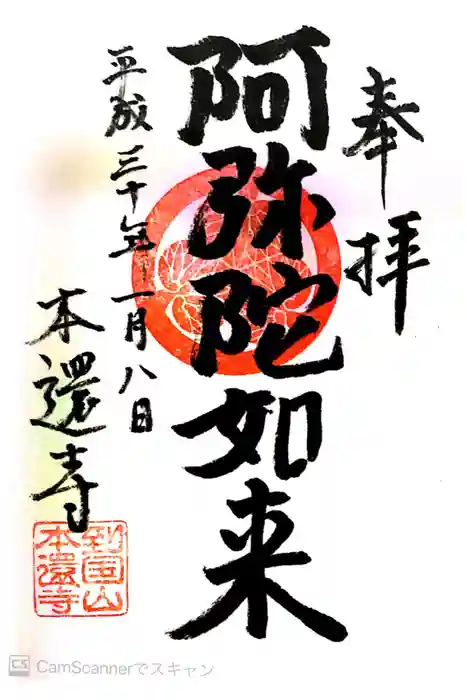 奉拝
阿弥陀如来
平成三十年一月八日
本還寺
到国山
本還寺
CamScannerでスキャン